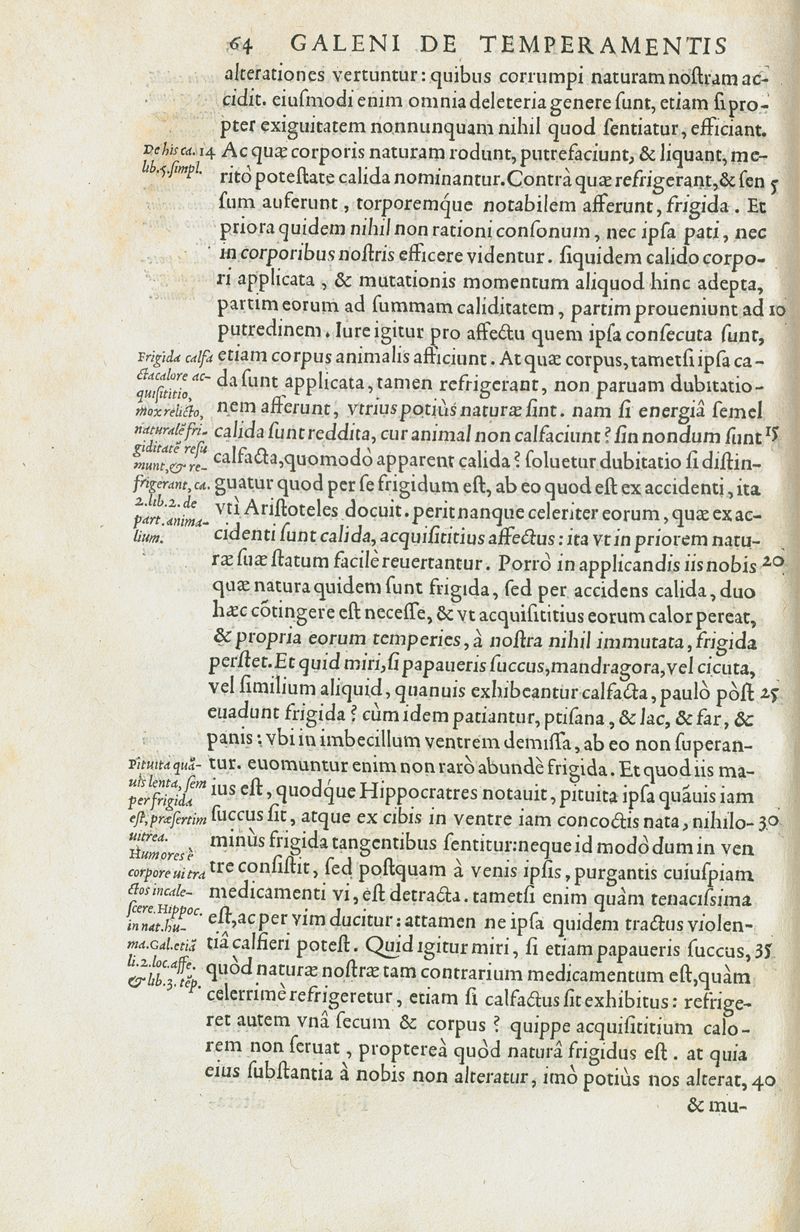 64 GALENI DE TEMPERAMENTIS
alterationes vertuntur: quibus corrumpi naturam noſtram ac-
cidit. eiuſmodi enim omnia deleteria genere ſunt, etiam ſi pro-
pter exiguitatem nonnunquam nihil quod ſentiatur, efficiant.
De his ca. 14
lib. 5. ſimpl.
Ac quæ corporis naturam rodunt, putrefaciunt, & liquant, me-
ritò poteſtate calida nominantur. Contrà quæ refrigerant, & ſen 5
ſum auferunt, torporemq́ue notabilem afferunt, frigida. Et
priora quidem nihil non rationi conſonum, nec ipſa pati, nec
in corporibus noſtris efficere videntur. ſiquidem calido corpo-
ri applicata, & mutationis momentum aliquod hinc adepta,
partim eorum ad ſummam caliditatem, partim proueniunt ad 10
putredinem. Iure igitur pro affectu quem ipſa conſecuta ſunt,
Frigida calfa
cta calore ac-
quiſititio,
mox relicto,
naturalē fri-
giditatē reſu
munt, & re-
frigerant, ca.
2. lib. 2. de
part. anima-
lium.
etiam corpus animalis afficiunt. At quæ corpus, tametſi ipſa ca-
da ſunt applicata, tamen refrigerant, non paruam dubitatio-
nem afferunt, vtrius potiùs naturæ ſint. nam ſi energiâ ſemel
calida ſunt reddita, cur animal non calfaciunt? ſin nondum ſunt 15
calfacta, quomodò apparent calida? ſoluetur dubitatio ſi diſtin-
guatur quod per ſe frigidum eſt, ab eo quod eſt ex accidenti, ita
vti Ariſtoteles docuit. perit nanque celeriter eorum, quæ ex ac-
cidenti ſunt calida, acquiſititius affectus: ita vt in priorem natu-
ræ ſuæ ſtatum facilè reuertantur. Porrò in applicandis iis nobis 20
quæ natura quidem ſunt frigida, ſed per accidens calida, duo
hæc cōtingere eſt neceſſe, & vt acquiſititius eorum calor pereat,
& propria eorum temperies, à noſtra nihil immutata, frigida
perſtet. Et quid miri, ſi papaueris ſuccus, mandragora, vel cicuta,
vel ſimilium aliquid, quanuis exhibeantur calfacta, paulò pòſt 25
euadunt frigida? cùm idem patiantur, ptiſana, & lac, & far, &
panis: vbi in imbecillum ventrem demiſſa, ab eo non ſuperan-
Pituita quā-
uis lenta, ſem
per frigida
eſt, præſertim
uitrea.
Humores è
corpore ui tra
ctos incale-
ſcere. Hippoc.
in nat. hu-
ma. Gal. etiā
li. 2. loc. affe.
& lib. 3. tēp.
tur. euomuntur enim non rarò abundè frigida. Et quod iis ma-
ius eſt, quodq́ue Hippocratres notauit, pituita ipſa quāuis iam
ſuccus ſit, atque ex cibis in ventre iam concoctis nata, nihilo- 30
minùs frigida tangentibus ſentitur: neque id modò dum in ven
tre conſiſtit, ſed poſtquam à venis ipſis, purgantis cuiuſpiam
medicamenti vi, eſt detracta. tametſi enim quàm tenaciſsima
eſt, ac per vim ducitur: attamen ne ipſa quidem tractus violen-
tiâ calfieri poteſt. Quid igitur miri, ſi etiam papaueris ſuccus, 35
quòd naturæ noſtræ tam contrarium medicamentum eſt, quàm
celerrimè refrigeretur, etiam ſi calfactus ſit exhibitus: refrige-
ret autem vnâ ſecum & corpus? quippe acquiſititium calo-
rem non ſeruat, propterea quòd naturâ frigidus eſt. at quia
eius ſubſtantia à nobis non alteratur, imò potiùs nos alterat, 40
& mu-